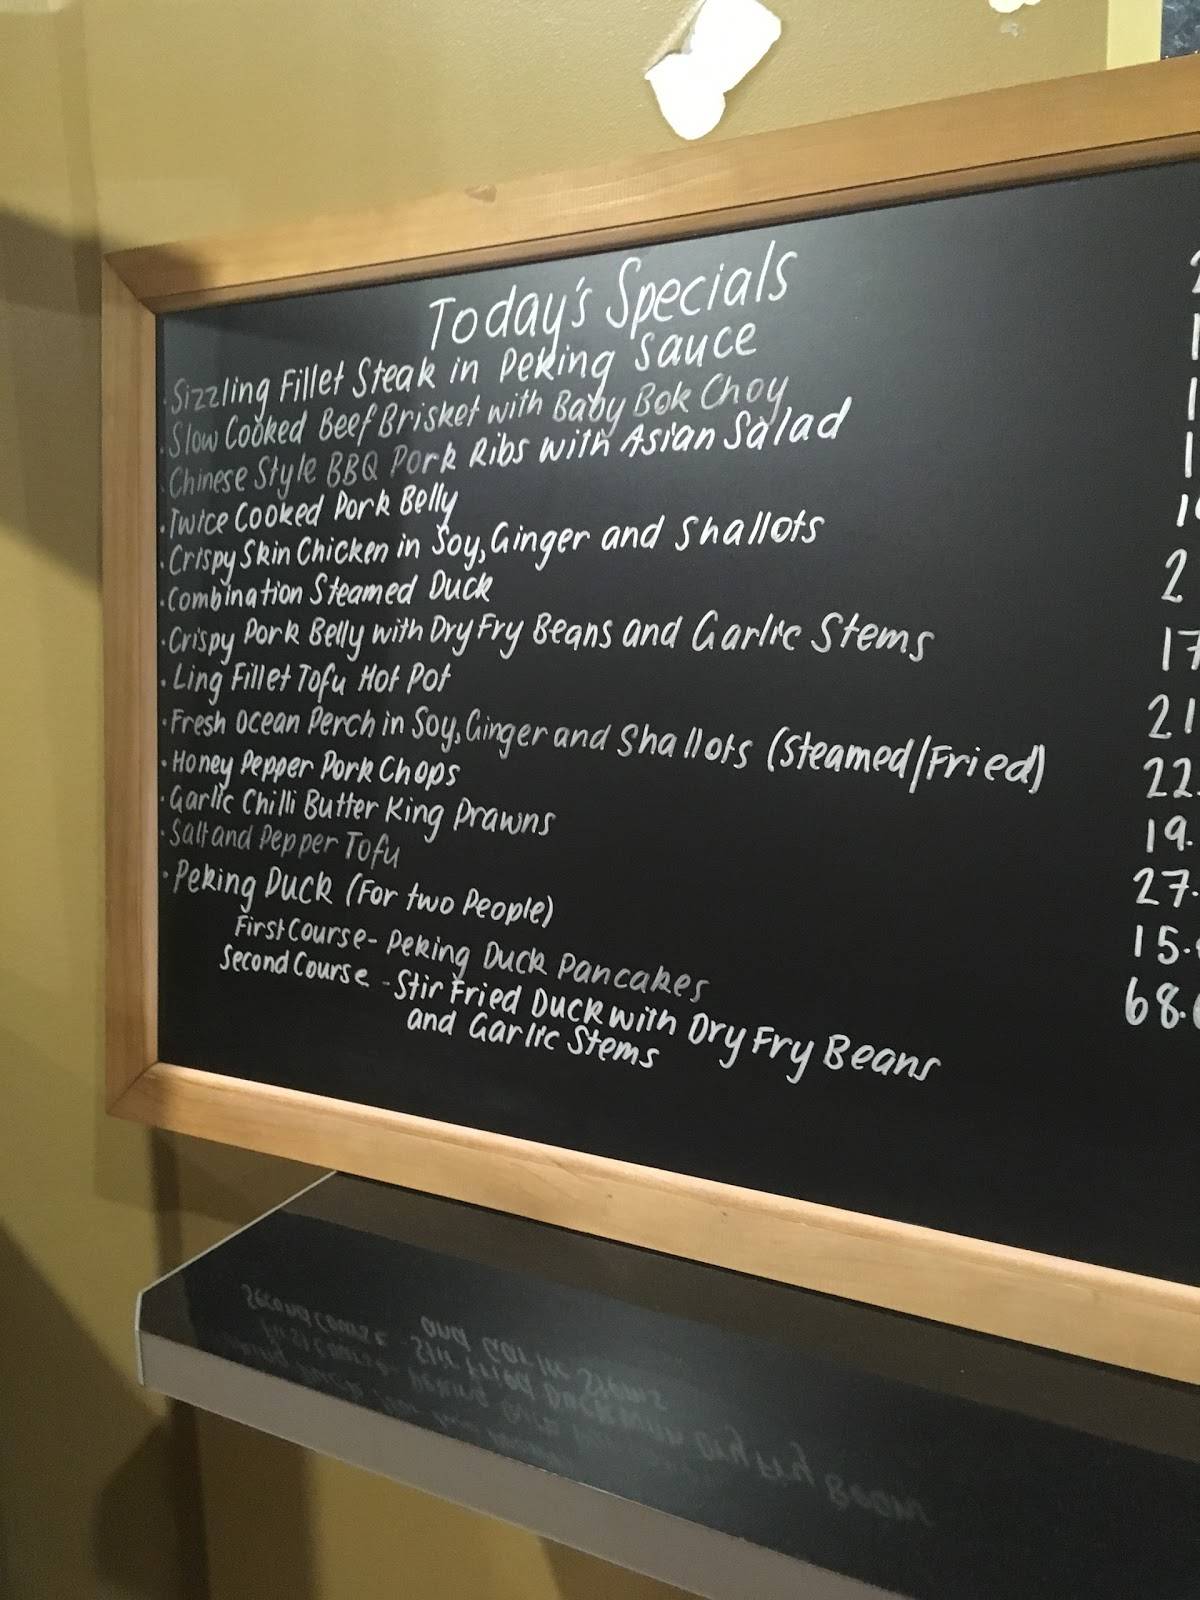 Today's Specials
· Sizzling Fillet Steak in Peking Sauce
· Slow Cooked Beef Brisket with Baby Bok Choy
· Chinese Style BBQ Pork Ribs with Asian Salad
· Twice Cooked Pork Belly
· Crispy Skin Chicken in Soy, Ginger and Shallots
· Combination Steamed Duck
· Crispy Pork Belly with Dry Fry Beans and Garlic Stems 17
· Ling Fillet Tofu Hot Pot 21
· Fresh Ocean Perch in Soy, Ginger and Shallots (Steamed/Fried) 22.
· Honey Pepper Pork Chops 19.
· Garlic Chilli Butter King Prawns 27.
· Salt and Pepper Tofu 15.
· Peking Duck (For two People) 68.
First Course - Peking Duck Pancakes
Second Course - Stir Fried Duck with Dry Fry Beans
and Garlic Stems